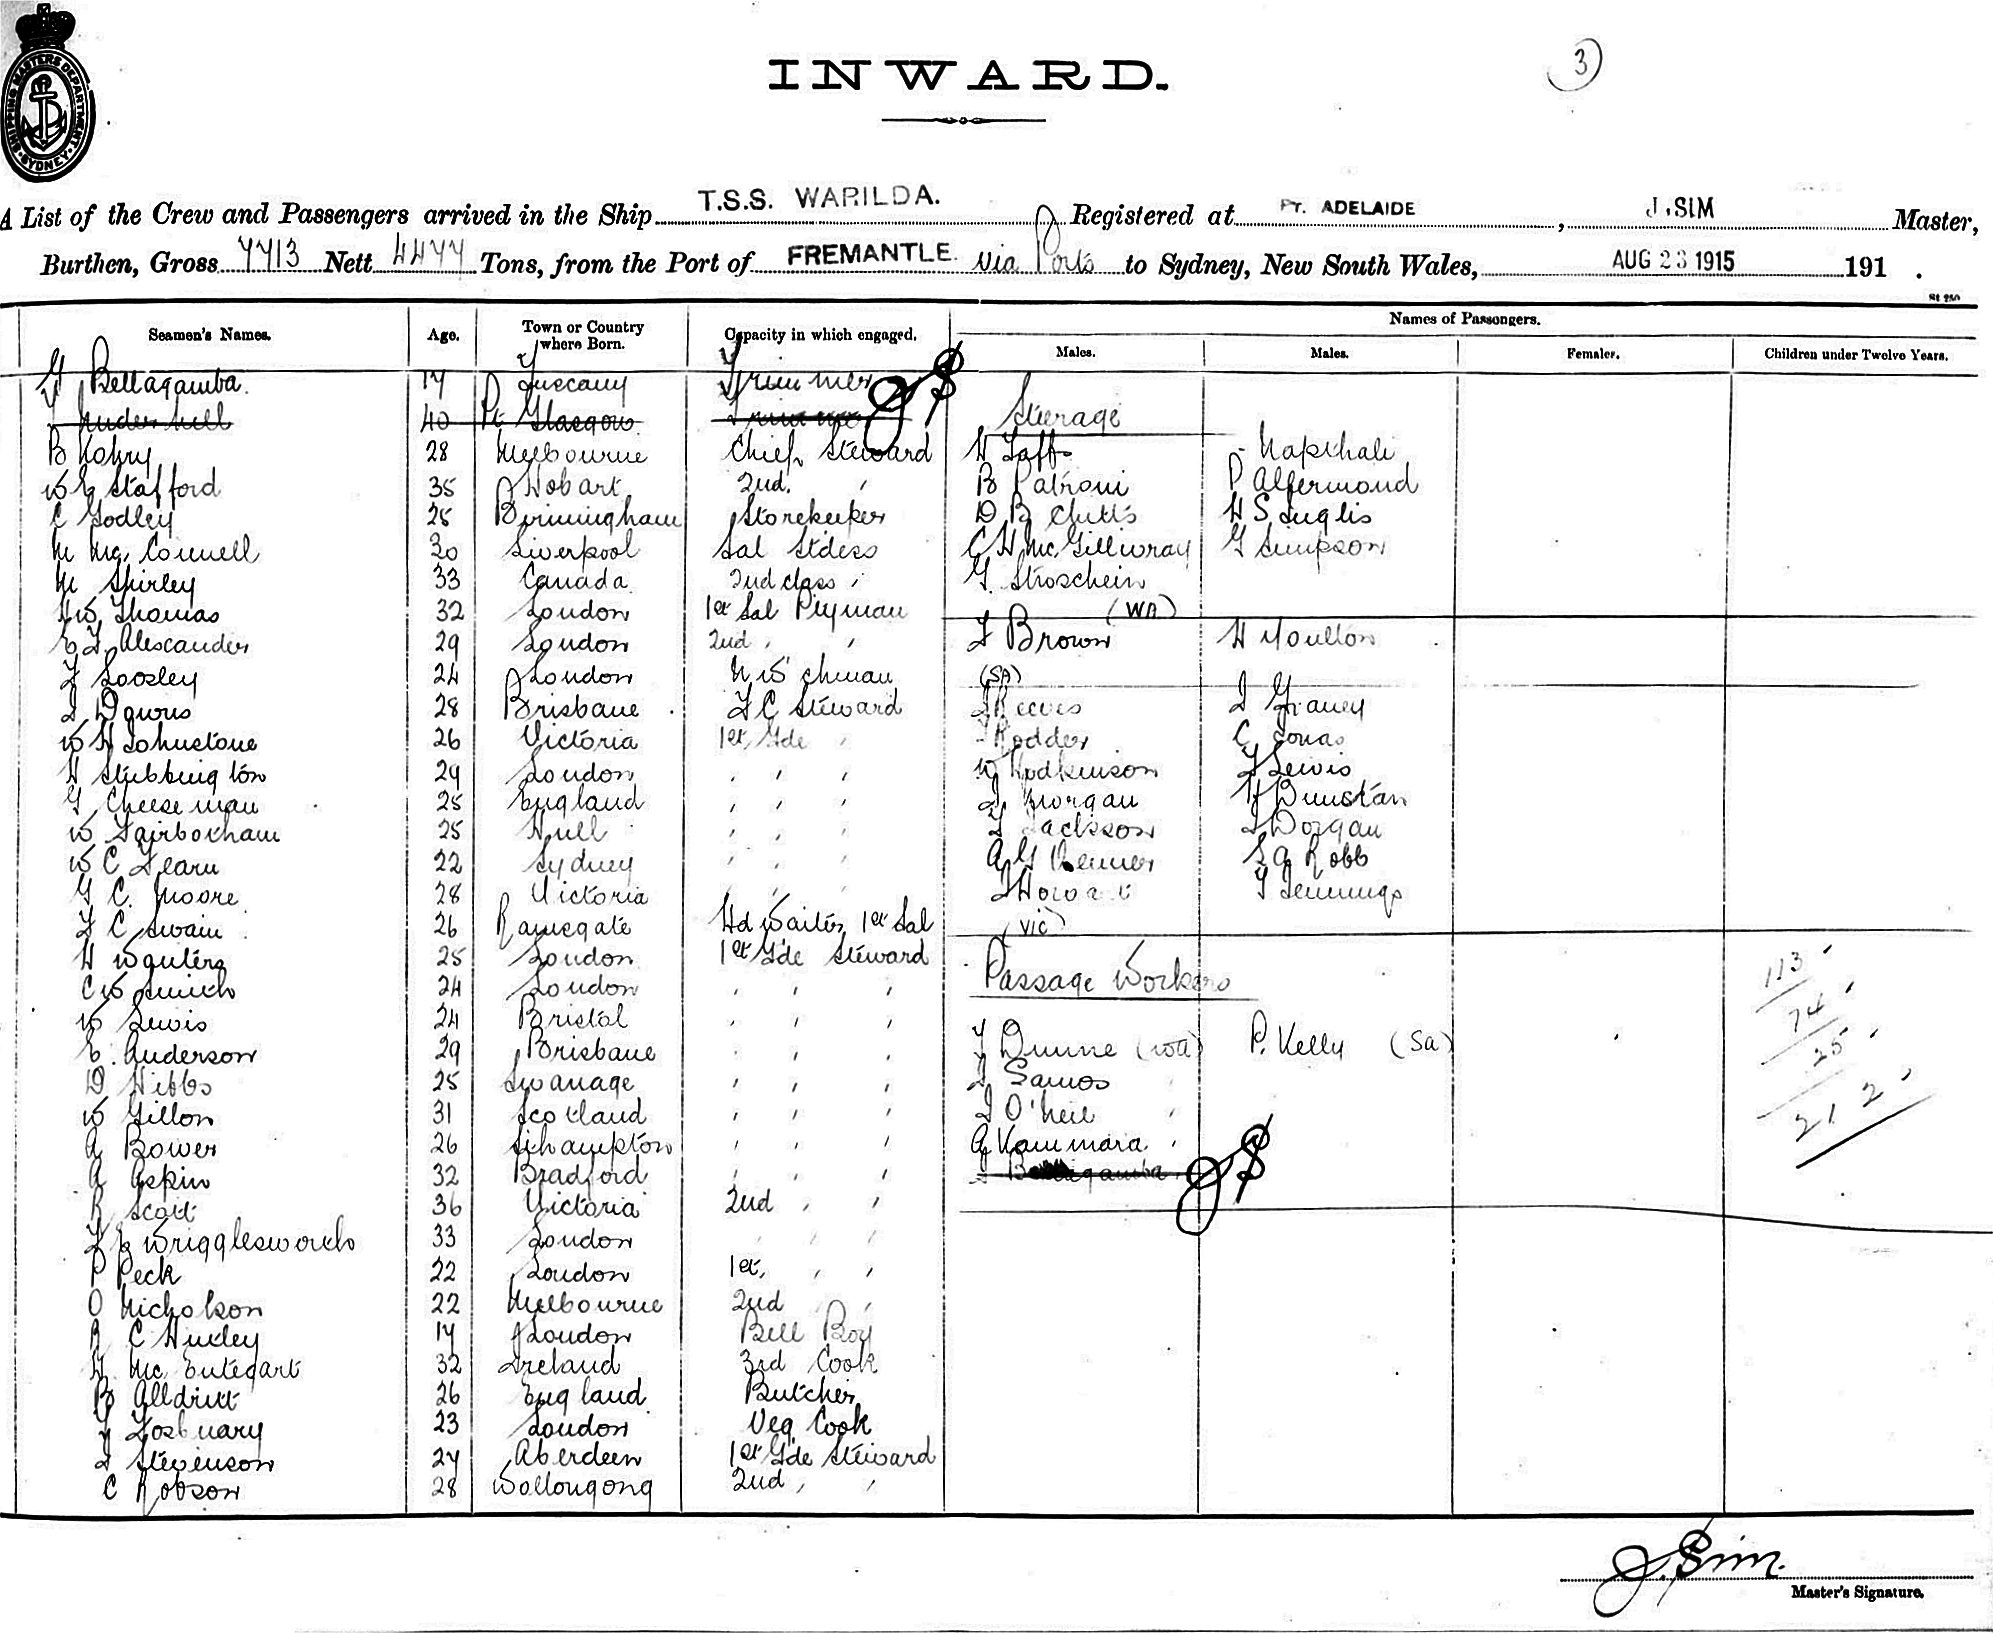 SHIPPING MASTERS DEPARTMENT SYDNEY
INWARD.
3
A List of the Crew and Passengers arrived in the Ship T.S.S. WARILDA. Registered at Pt. ADELAIDE, J. SIM Master,
Burthen, Gross 7713 Nett 4477 Tons, from the Port of FREMANTLE. via Ports to Sydney, New South Wales, AUG 23 1915 191 .
St 250
Seamen's Names. Age. Town or Country where Born. Capacity in which engaged. Names of Passengers.
Males. Males. Females. Children under Twelve Years.
G Bellagamba. 17 Tuscany Trimmer
40 Pt Glasgow Trimmer Steerage
B Kohry 28 Melbourne Chief Steward H Taffs - Napthali
W E Stafford 35 Hobart 2nd. " B Patroni P Alfermond
C Godley 25 Birmingham Storekeeper D B Chitts H S Inglis
M Mc Connell 30 Liverpool Sal Stdess C H McGillivray G Simpson
M Shirley 33 Canada 2nd class " G. Stroschein
H W Thomas 32 London 1st Sal P'tyman (WA)
E T Alexander 29 London 2nd " " T Brown H Moulton
F Loosley 24 London N W'chman (SA)
J Downs 28 Brisbane F C Steward J Reeves J Graney
W H Johnstone 26 Victoria 1st Gde " - Rodder C Jonas
H Stebbington 29 London " " " W Hodkinson F Lewis
G Cheeseman 25 England " " " J Morgan H Dunstan
W Fairbotham 25 Hull " " " F Jackson J Dorgan
W C Fearn 22 Sydney " " " A G S A Robb
G C. Moore 28 Victoria " " " J Howa T Jennings
F C Swain 26 Ramsgate Hd Waiter 1st Sal (VIC)
H Wauters 25 London 1st Gde Steward
C W Smith 24 London " " " Passage Workers 113
W Lewis 24 Bristol " " " 74
E. Anderson 29 Brisbane " " " T Dunne (WA) P. Kelly (SA) 25
D Hibbs 25 Swanage " " " J Samos "
W Gillon 31 Scotland " " " J O'Neil " 212
A Bower 26 S'thampton " " " A Kammara "
A Aspin 32 Bradford " " " Bellagamba
R Scott 36 Victoria 2nd " "
F E Wrigglesworth 33 London " " "
P Peck 22 London 1st, " "
O Nicholson 22 Melbourne 2nd " "
R C Huxley 17 London Bell Boy
H. Mc Entegart 32 Ireland 3rd Cook
B Alldritt 26 England Butcher
T Fosbuary 23 London Veg Cook
J Stevenson 27 Aberdeen 1st Gde Steward
C Robson 28 Wollongong 2nd " "
J. Sim.
Master's Signature.